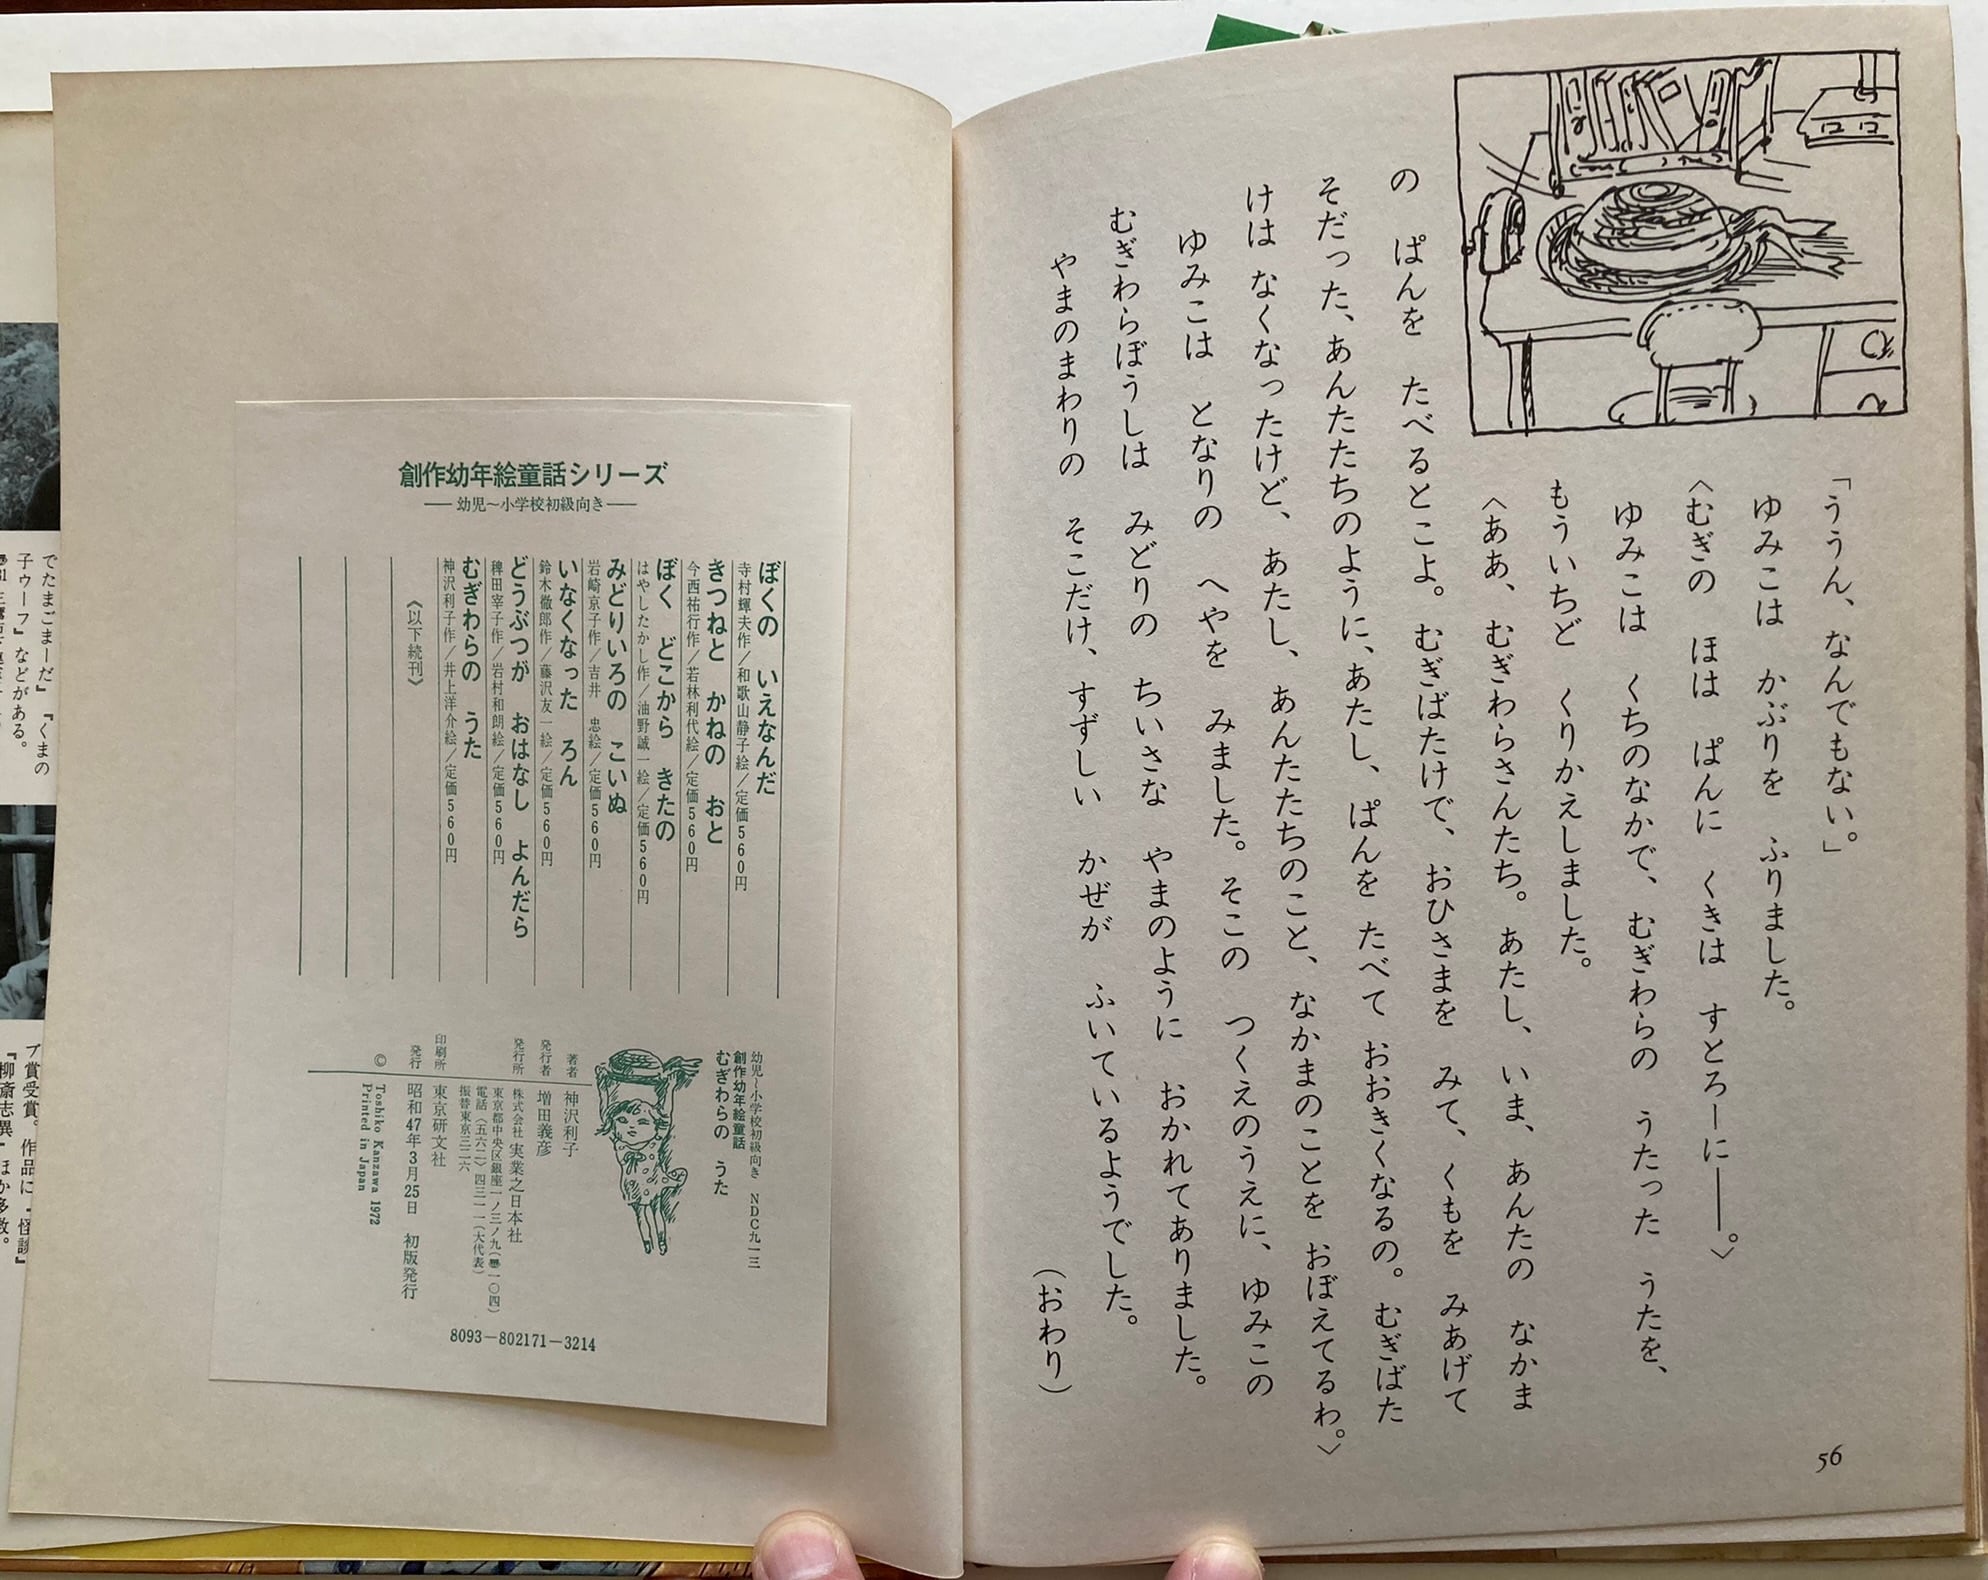 「ううん、なんでもない。」
ゆみこは かぶりを ふりました。
〈むぎの ほは ぱんに くきは すとろーに――。〉
ゆみこは くちのなかで、むぎわらの うたった うたを、
もういちど くりかえしました。
〈ああ、むぎわらさんたち。あたし、いま、あんたの なかま
の ぱんを たべるとこよ。むぎばたけで、おひさまを みて、くもを みあげて
そだった、あんたたちのように、あたし、ぱんを たべて おおきくなるの。むぎばた
けは なくなったけど、あたし、あんたたちのこと、なかまのことを おぼえてるわ。〉
ゆみこは となりの へやを みました。そこの つくえのうえに、ゆみこの
むぎわらぼうしは みどりの ちいさな やまのように おかれてありました。
やまのまわりの そこだけ、すずしい かぜが ふいているようでした。
（おわり）
56
創作幼年絵童話シリーズ
――幼児～小学校初級向き――
ぼくの いえなんだ
寺村輝夫作／和歌山静子絵／定価560円
きつねと かねの おと
今西祐行作／若林利代絵／定価560円
ぼく どこから きたの
はやしたかし作／油野誠一絵／定価560円
みどりいろの こいぬ
岩崎京子作／吉井 忠絵／定価560円
いなくなった ろん
鈴木徹郎作／藤沢友一絵／定価560円
どうぶつが おはなし よんだら
稗田宰子作／岩村和朗絵／定価560円
むぎわらの うた
神沢利子作／井上洋介絵／定価560円
《以下続刊》
幼児～小学校初級向き NDC九一三
創作幼年絵童話
むぎわらの うた
著者 神沢利子
発行者 増田義彦
発行所 株式会社 実業之日本社
東京都中央区銀座一ノ三ノ九（〒一〇四）
電話（五六二）四三一一（大代表）
振替東京三二六
印刷所 東京研文社
発行 昭和47年3月25日 初版発行
© Toshiko Kanzawa 1972
Printed in Japan
8093―802171―3214
でたまごまーだ』『くまの
子ウーフ』などがある。
プ賞受賞。作品に『怪談』
『柳斎志異』ほか多数。